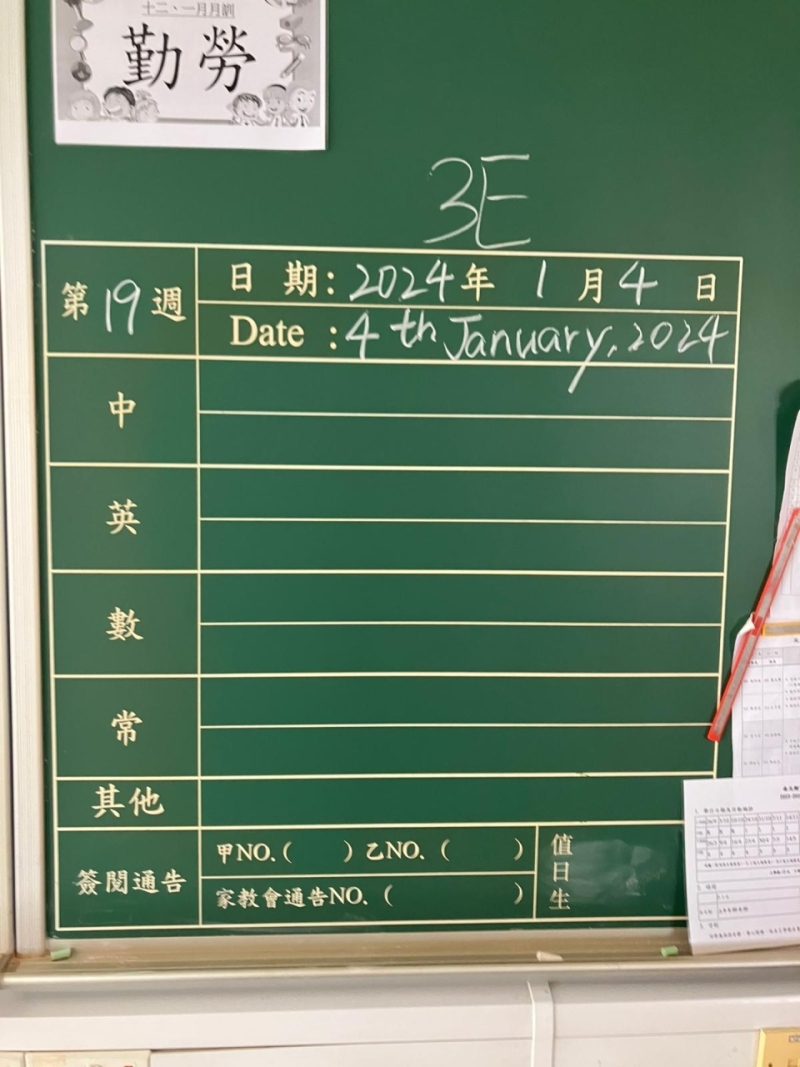 十二、一月月訓
勤勞
3E
第19週
日期:2024年1月4日
Date:4th January, 2024
中
英
數
常
其他
簽閱通告
甲NO.( )乙NO.( )
家教會通告NO.( )
值日生